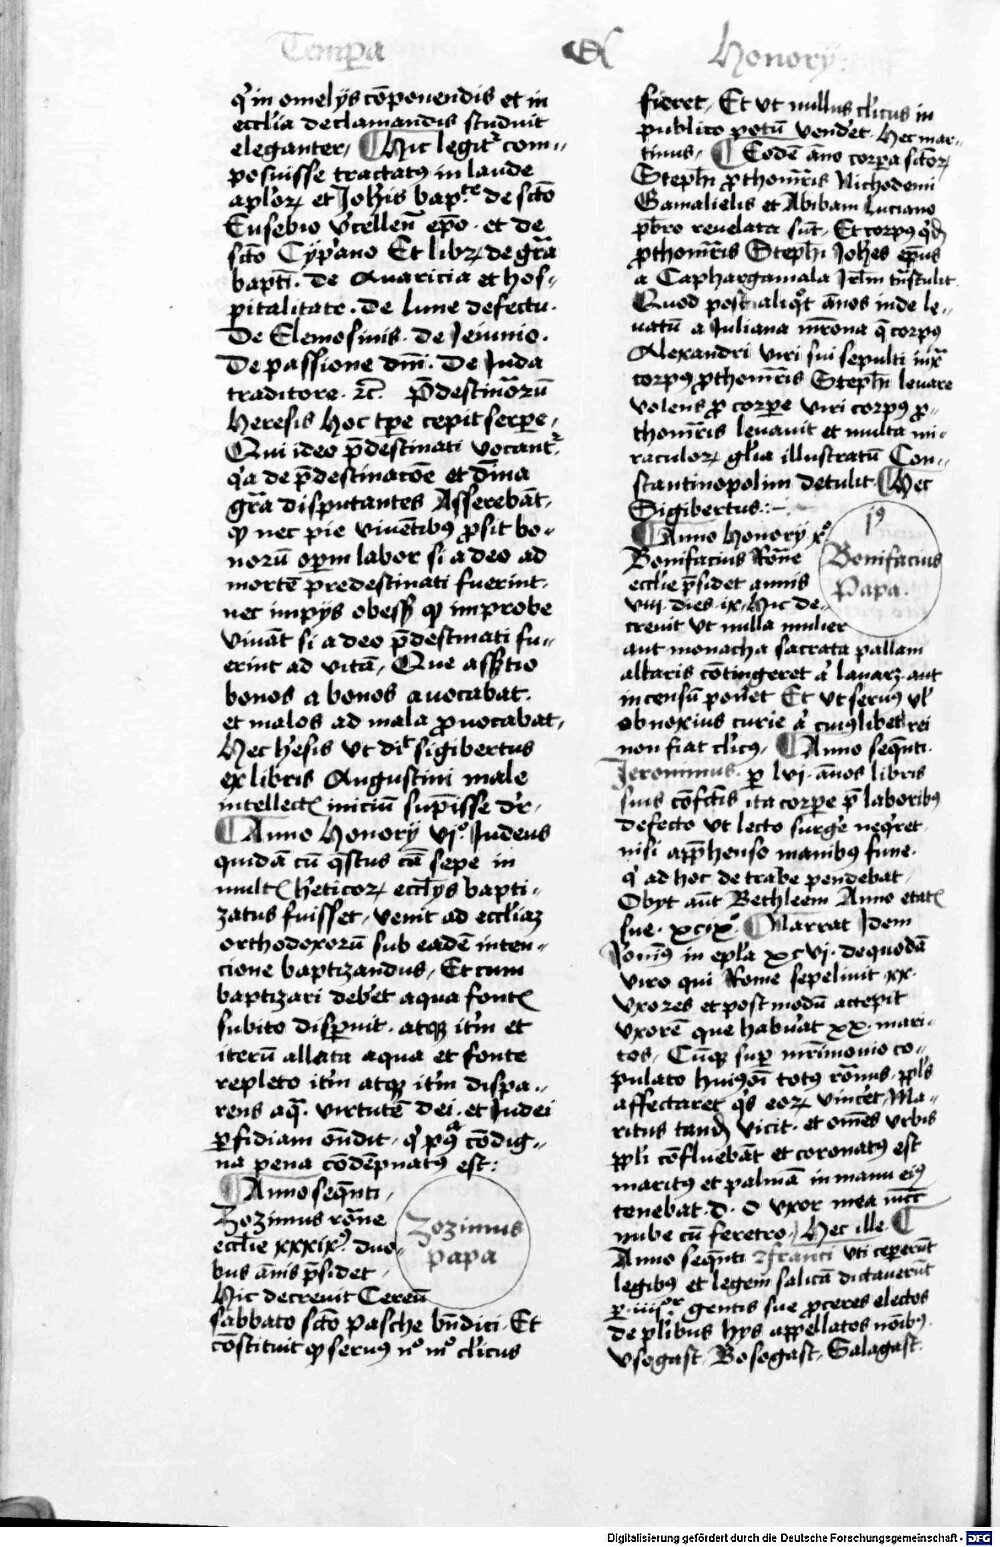 Tempora Et Honorij
qͥ in omelijs cōponendis et in
eccl̄ia declamandis studuit
eleganter, ¶ Hic legitᷣ com-
posuisse tractatꝰ in laude
apl̄oꝝ et Joh̄is bapte de sc̄to
Eusebio v̓cellen̄ ep̄o · et de
sc̄to Cyp̓ano Et librꝝ de gr̄a
bapti · de Avaricia et hos-
pitalitate · de lune defectu ·
De Elemosinis · de Jeiunio ·
De passione dn̄i · De Juda
traditore · ⁊c̄ · P̄destinatoꝝū
heresis hoc tp̄e cepit serpe ·
Qui ideo p̄destinati vocantᷣ
qͥa de p̄destinacōe et diuīna
gr̄a disputantes Asserebāt ·
ꝙ nec pie viuētibꝰ ꝓsit bo-
norū opm̄ labor si a deo ad
mortē predestinati fuerint ·
nec impijs obess̄ ꝙ improbe
viuāt si a deo p̄destinati fu-
erint ad vitā, Que ass̓tio
bonos a bonos auocabat ·
et malos ad mala ꝓuocabat,
Hec h̓esis vt dit̄ sigibertus
ex libris Augustini male
intellectꝭ iniciū sūpsisse dr̄,
¶ Anno Honorij vjº Judeus
quidā cū qͥstus cā sepe in
multꝭ h̓eticoꝝ eccl̄ijs bapti-
zatus fuisset, venit ad eccl̄iaꝫ
orthodoxorū sub eadē inten-
cione baptizandus, Et cum
baptizari deb̓et aqua fontꝭ
subito disp̄uit · atqꝫ it̓m et
iterū allata aqua et fonte
repleto it̓m atqꝫ it̓m dispa-
rens aq̄ · virtutē dei · et Judei
ꝑfidiam on̄dit · qͥ pqͣ cōdig-
na pena cōdēpnatꝰ est :
¶ Anno seqn̄ti,
Zozimus rōne
eccl̄ie xxxixꝰ duo-
bus ānis p̄sidet,
Hic decreuit Cereū
sabbato sc̄to Pasche bn̄dici, Et
cōstituit ꝙ seruꝰ nº mº cl̓icus
Zozimus
papa
fieret, Et vt nullus cl̓icus in
publico potū vend̓et · Hec mar-
tinus, ¶ Eodē āno corpa sc̄toꝝ
Steph̄i ꝓthom̄ris Nichodemi
Gamalielis et Abibam Luciano
pb̄ro reuelata sūt, Et corpꝰ qͥdē
ꝓthom̄ris Steph̄i Joh̄es ep̄us
a Caphargamala Jrl̄m tn̄stulit
Quod post aliqͦt ānos inde le-
uatū a Juliana m̄rona q̄ corpꝰ
Alexandri viri sui sepulti iux̄
corpꝰ ꝓthom̄ris Steph̄i leuare
volens ꝓ corpe viri corpꝰ ꝓ-
thom̄ris leuauit et multa mi-
raculoꝝ gl̄ia illustratū Con-
stantinopolim detulit ¶ Hec
Sigibertus :-
¶ Anno Honorij xº
Bonifacius Rōne
eccl̄ie p̄sidet annis
viii · dies · ix, Hic de-
creuit vt nulla mulier
aut monacha sacrata pallam
altaris cōtingeret a͛ lauarꝫ aut
incensū pon̓et Et vt seruꝰ vl̓
obnoxius curie a͛ cuiꝰlibet rei
non fiat cl̓icꝰ, ¶ Anno seqn̄ti ·
Jeronimus · ꝑ lvi · ānos libris
suis cōfctīs ita corpe p̄ laboribꝰ
defecto vt lecto surg̓e neq̓ret
nisi app̄henso manibꝰ fune ·
qͥ ad hoc de trabe pendebat,
Obijt aūt Bethleem Anno etatꝭ
sue · xcixº · ¶ Narrat Jdem
Jeronimꝰ in epl̄a xcvj · de quodā
viro qui Rome sepeliuit · xx ·
vxores et postmodū accepit
vxorē que habu̓at xx · mari-
tos, Cūqꝫ sup̄ mr̄imonio co-
pulato huiꝰmōi totꝰ rōnus · ppl̄s
affectaret qͥs eoꝝ vinc̓et, Ma-
ritus tandē vicit · et om̄es vrbis
ppl̄i cōfluebāt et coronatꝰ est
maritꝰ et palmā in manu eiꝰ
tenebat · d · O vxor mea
nube cū feretro, Hec ille ¶
Anno seqn̄ti Franci vti ceperūt
legibꝰ et legem salicā dictauerūt
ꝑ · iiiior gentis sue ꝓceres electos
de pl̓ibus hijs appellatos noībꝰ ·
vsogast, Bosogast, Salagast ·
jꝰ
Bonifacius
Papa ·
Digitalisierung gefördert durch die Deutsche Forschungsgemeinschaft - DFG